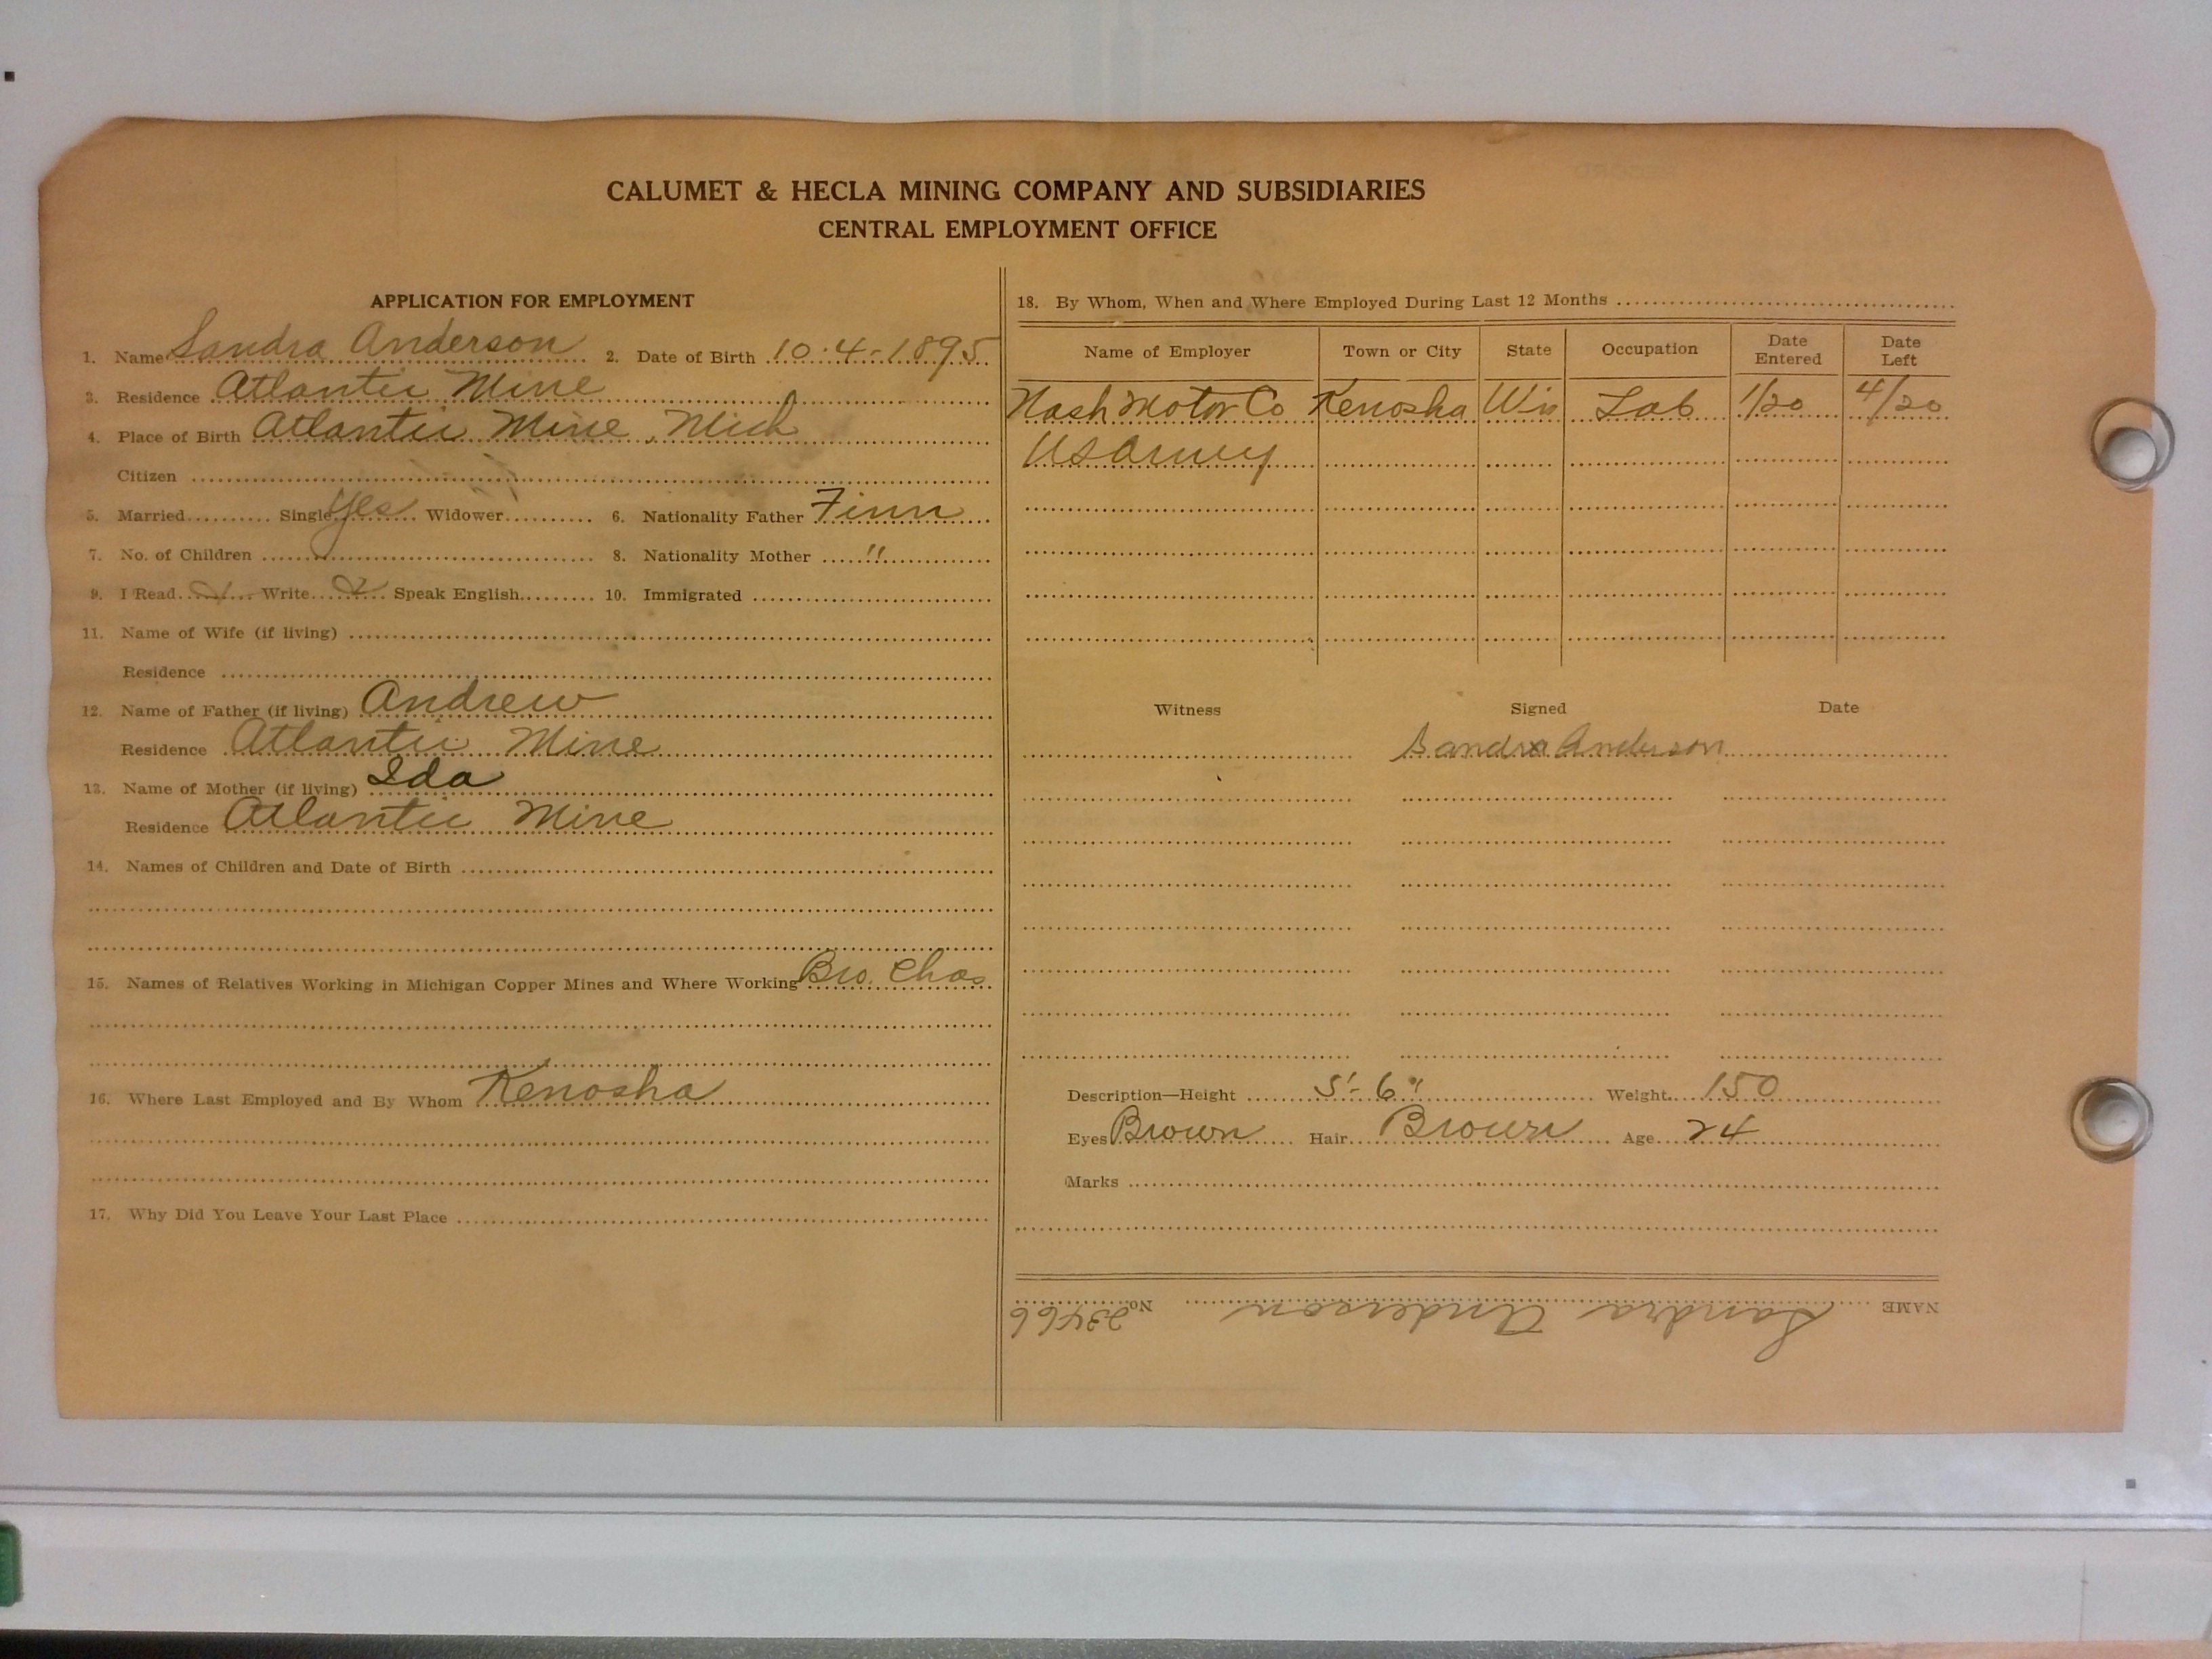 CALUMET & HECLA MINING COMPANY AND SUBSIDIARIES
CENTRAL EMPLOYMENT OFFICE
APPLICATION FOR EMPLOYMENT
1. Name Sandra Anderson 2. Date of Birth 10-4-1895
3. Residence Atlantic Mine
4. Place of Birth Atlantic Mine, Mich
Citizen
5. Married Single yes Widower 6. Nationality Father Finn
7. No. of Children 8. Nationality Mother "
9. I Read Write Speak English 10. Immigrated
11. Name of Wife (if living)
Residence
12. Name of Father (if living) Andrew
Residence Atlantic Mine
13. Name of Mother (if living) Ida
Residence Atlantic Mine
14. Names of Children and Date of Birth
15. Names of Relatives Working in Michigan Copper Mines and Where Working Bro. Chas
16. Where Last Employed and By Whom Kenosha
17. Why Did You Leave Your Last Place
18. By Whom, When and Where Employed During Last 12 Months
Name of Employer Town or City State Occupation Date Entered Date Left
Nash Motor Co Kenosha Wis Lab 1/20 4/20
US Army
Witness Signed Date
Sandra Anderson
Description—Height 5'-6" Weight 150
Eyes Brown Hair Brown Age 24
Marks
NAME Sandra Anderson No. 23466